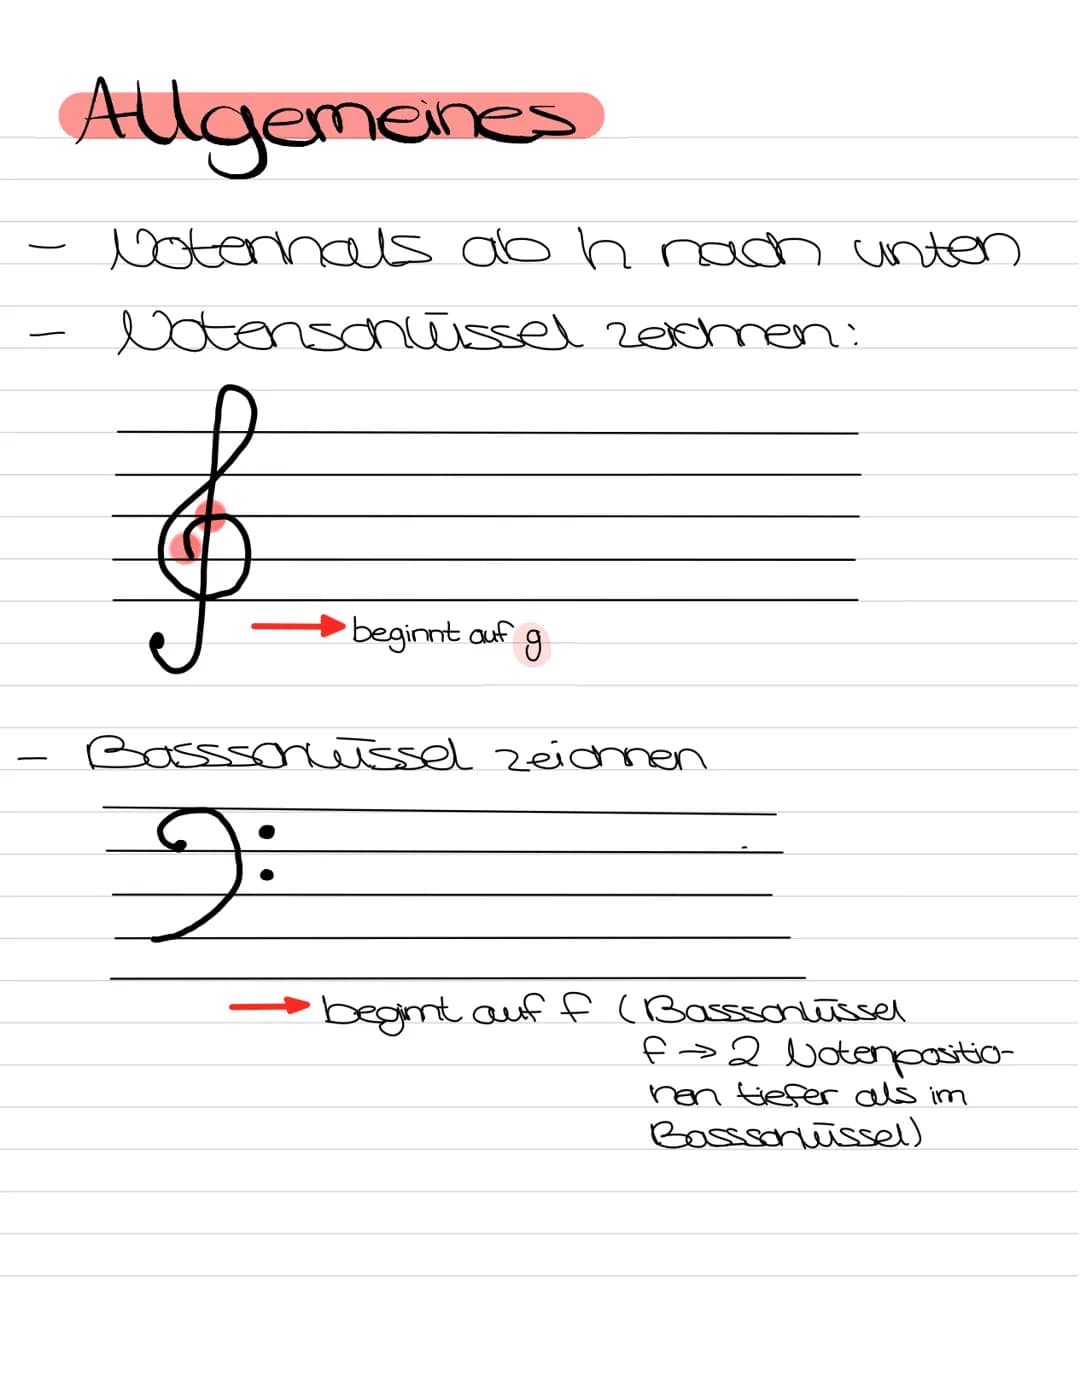 Allgemeines
- Notenhals ab h nach unten
- Notenschlüssel zeichnen:
→ beginnt auf g
- Bassschlüssel zeichnen
→ beginnt auf f (Bassschlüssel
f → 2 Notenpositio-
nen tiefer als im
Bassschlüssel)